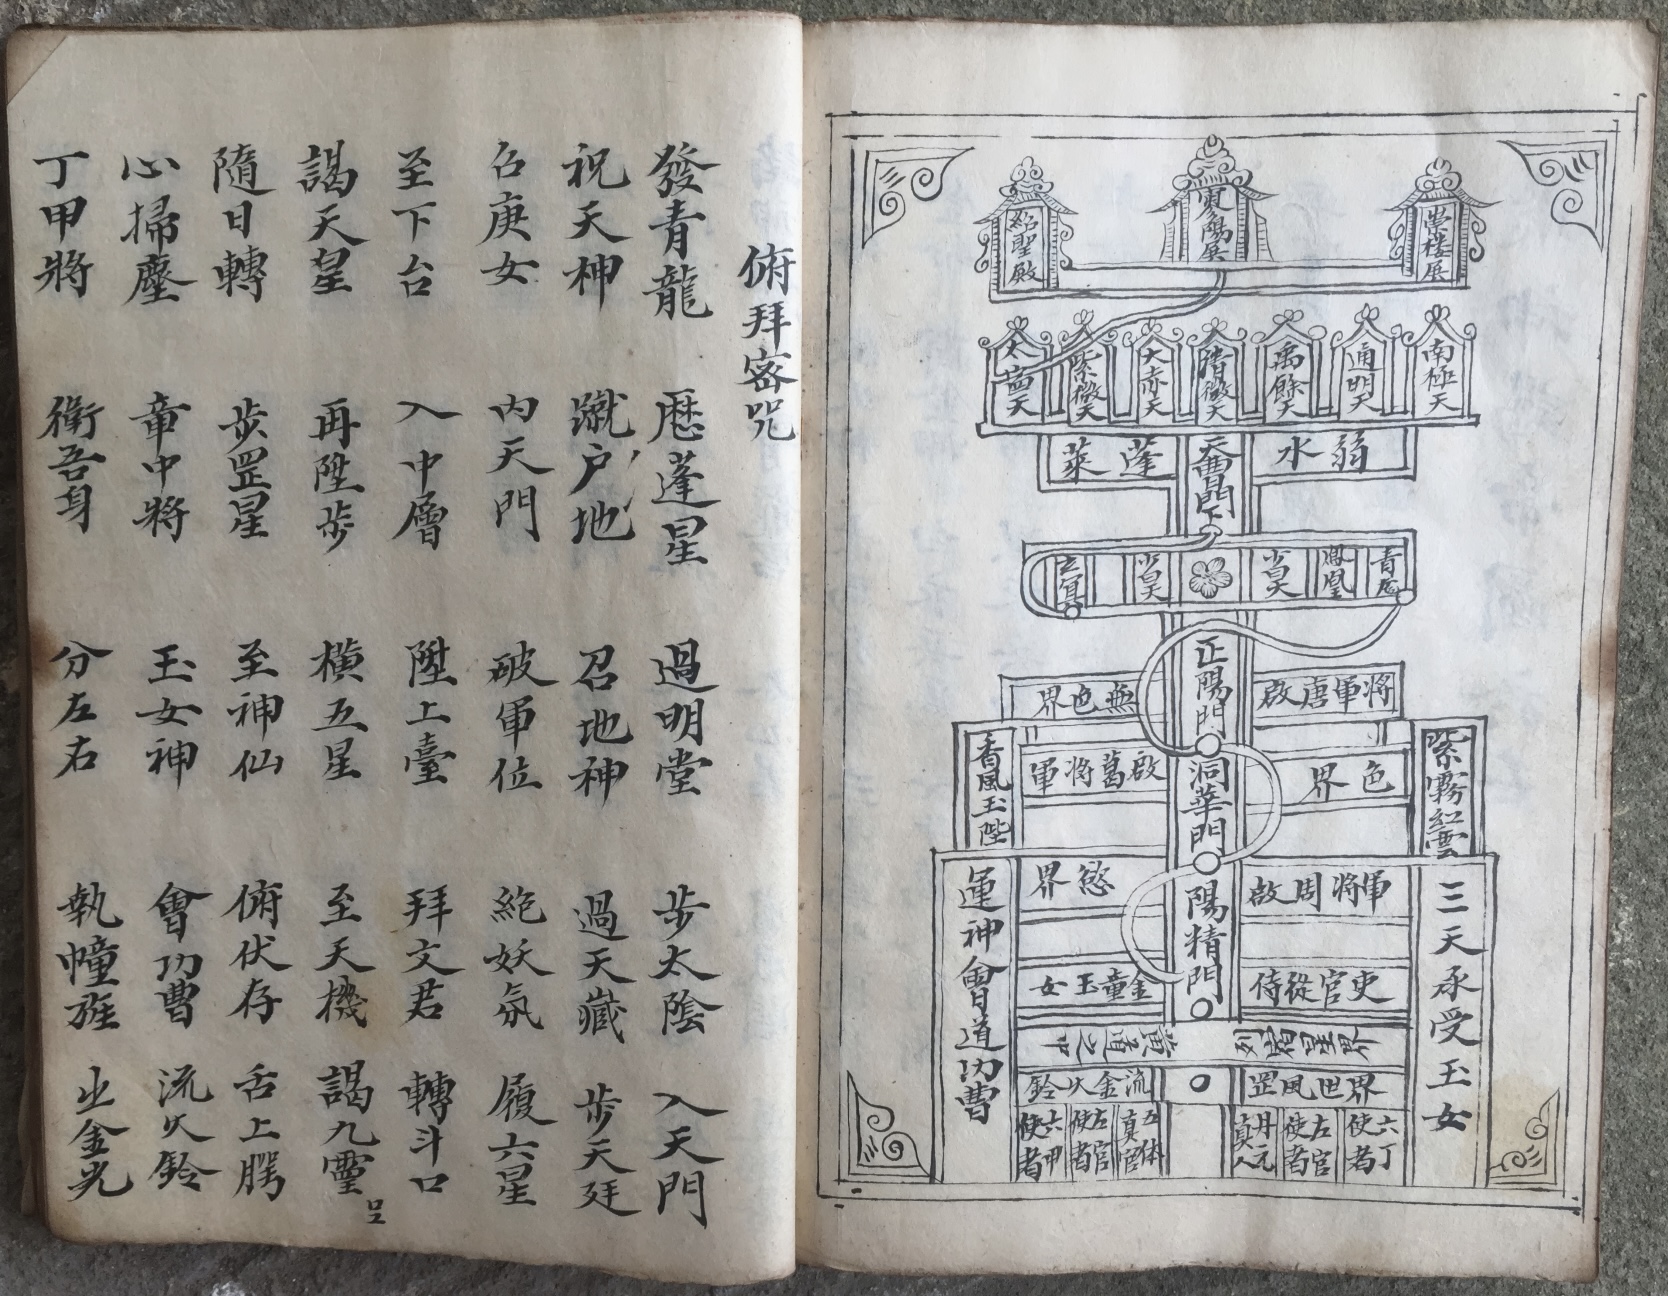 俯拜密咒
發青龍 歷蓬星 過明堂 步太陰 入天門
祝天神 蹴户地 召地神 過天藏 步天廷
召庚女 内天門 破軍位 絕妖氛 履六星
至下台 入中層 陞上臺 拜文君 轉斗口
謁天星 再陞步 橫五星 至天機 謁九靈
隨日轉 步罡星 至神仙 俯伏存 舌上腭
心掃塵 章中將 玉女神 會功曹 流火鈴
丁甲將 衛吾身 分左右 執幢旌 止金光
紹聖殿
南極天
通明天
禹餘天
清微天
大赤天
紫微天
弱水
蓬萊
鳳凰
正陽門
將軍唐啟
無色界
紫霧紅雲
色界
洞華門
啟葛將軍
香風玉陛
三天承受玉女
軍將周啟
陽精門
慾界
運神會道功曹
吏官從侍
金童玉女
界世風罡
流金火鈴
六丁使者
左官使者
丹元真人
五体真官
左官使者
六甲使者